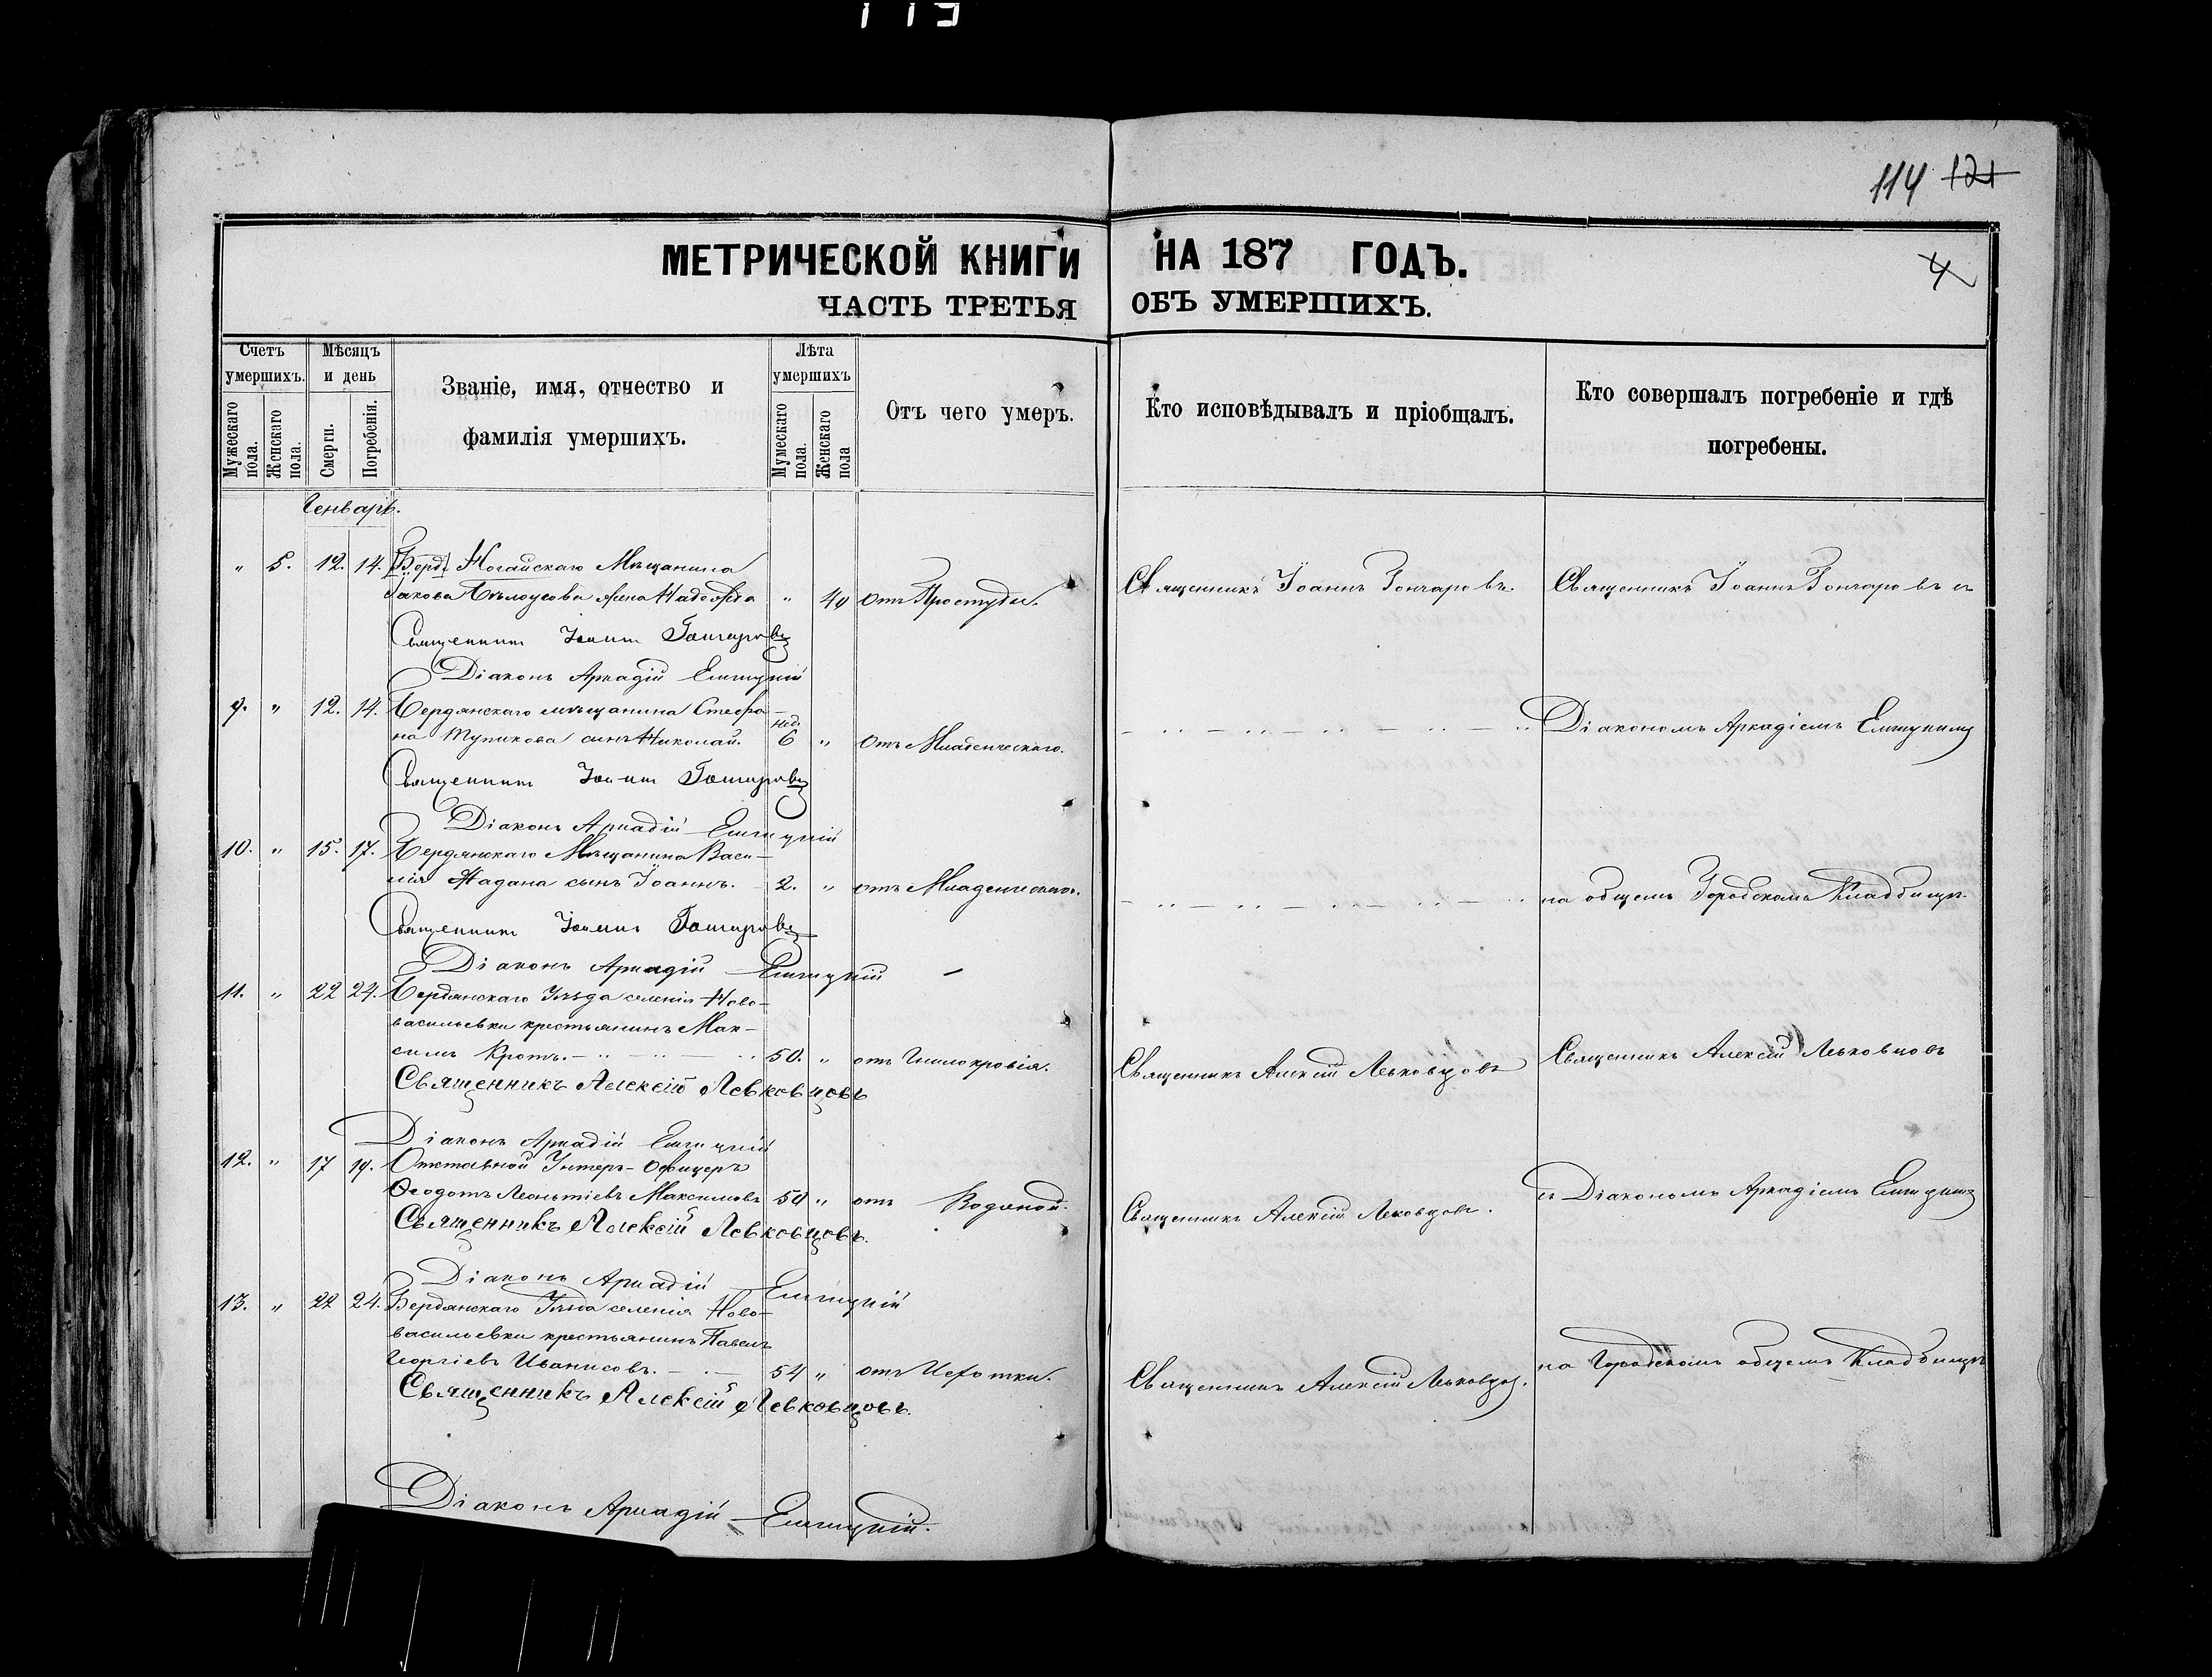 113
114 121
МЕТРИЧЕСКОЙ КНИГИ НА 187 ГОДЪ.
4
ЧАСТЬ ТРЕТЬЯ ОБЪ УМЕРШИХЪ.
Счетъ умершихъ.
Мужескаго пола.
Женскаго пола.
Мѣсяцъ и день
Смерти.
Погребенія.
Званіе, имя, отчество и
фамилія умершихъ.
Лѣта умершихъ
Мужескаго пола.
Женскаго пола
Отъ чего умеръ.
Кто исповѣдывалъ и пріобщалъ.
Кто совершалъ погребеніе и гдѣ
погребены.
Генварь.
" 5. 12. 14. Ногайскаго Мѣщанина
Іакова Бѣлоусова жена Надежда " 40 отъ Простуды. Священникъ Іоаннъ Гончаровъ. Священникъ Іоаннъ Гончаровъ съ
Священникъ Іоаннъ Гончаровъ
Діаконъ Аркадій
9. " 12. 14. Бердянскаго мѣщанина Стефа-
на Тупикова сынъ Николай. нед. 6 " отъ Младенческаго. Діакономъ Аркадіемъ
Священникъ Іоаннъ Гончаровъ
Діаконъ Аркадій
10. " 15. 17. Бердянскаго Мѣщанина Васи-
лія Жадана сынъ Іоаннъ. 2. " отъ Младенческаго. на общемъ Городскомъ Кладбищѣ.
Священникъ Іоаннъ Гончаровъ
Діаконъ Аркадій
11. " 22 24. Бердянскаго Уѣзда селенія Ново-
васильевки крестьянинъ Мак-
симъ Кротъ. 50. " отъ Гнилокровія. Священникъ Алексій Левковцовъ Священникъ Алексій Левковцовъ
Священникъ Алексій Левковцовъ
Діаконъ Аркадій
12. " 17 19. Отставной Унтеръ-Офицеръ
Ѳеодотъ Леонтіевъ Максимовъ 50 " отъ Водяной. Священникъ Алексій Левковцовъ. съ Діакономъ Аркадіемъ
Священникъ Алексій Левковцовъ.
Діаконъ Аркадій
13. " 22 24. Бердянскаго Уѣзда селенія Ново-
васильевки крестьянинъ Павелъ
Георгіевъ Иванисовъ. 54 " отъ Чехотки. Священникъ Алексій Левковцов. на Городскомъ общемъ Кладбищѣ
Священникъ Алексій Левковцовъ.
Діаконъ Аркадій